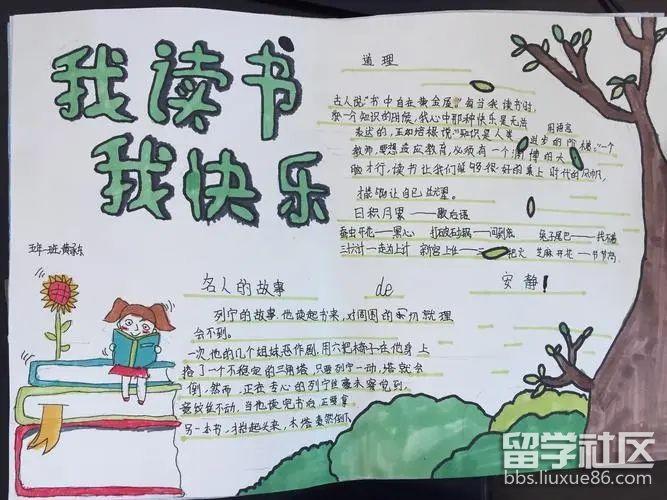 我读书
我快乐
道理
古人说"书中自有黄金屋"。每当我读书时，
每一个知识的用候，我心中那种快乐是无法
用语言
表达的，正如培根说："知识是人类进步的阶梯"一个
教师，要想适应教育，必须有一个渊博的大
脑才行，读书让我们能够很好的乘上时代的风帆，
让自己
日积月累——歇后语
蚕虫开花——黑心 打破砂锅——问到底 兔子尾巴——
三十六计——走为上计 新官上任——三 把火 芝麻开花——节节高
五年一班
名人的故事 de 安静！
列宁的故事 他读起书来，对周围的 就理
会不到。
一次他的几个姐妹恶作剧，用六把椅子在他身上
搭了一个不稳定的三角塔，只要列宁一动，塔就会
倒，然而，正在专心的列宁丝毫未察觉到，
竟纹丝不动，当他读完书 正要拿
另一本书， 抬起头来，木塔轰然倒下
留学社区
bbs.liuxue86.com